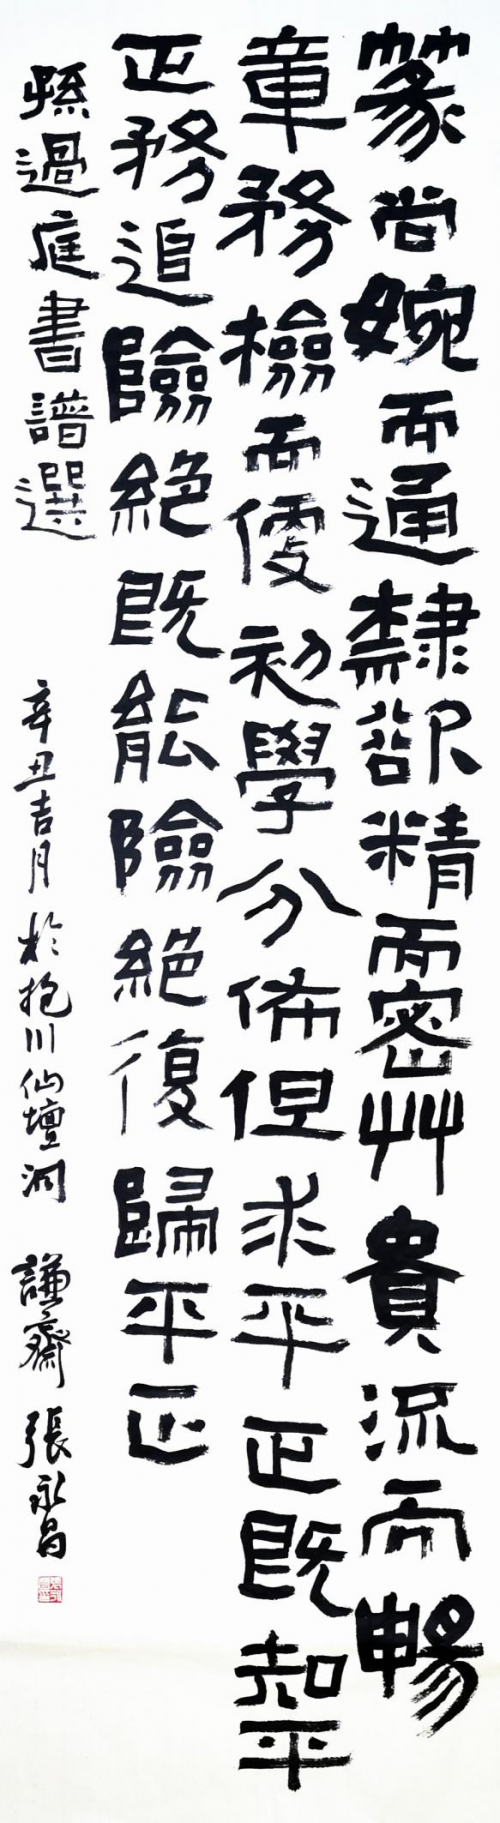 篆尚婉而通隸欲精而密艸貴流而暢
章務檢而便初學分佈但求平正既知平
正務追險絕既能險絕復歸平正
孫過庭書譜選
辛丑吉月於抱川仙壇洞 謙齋 張永昌